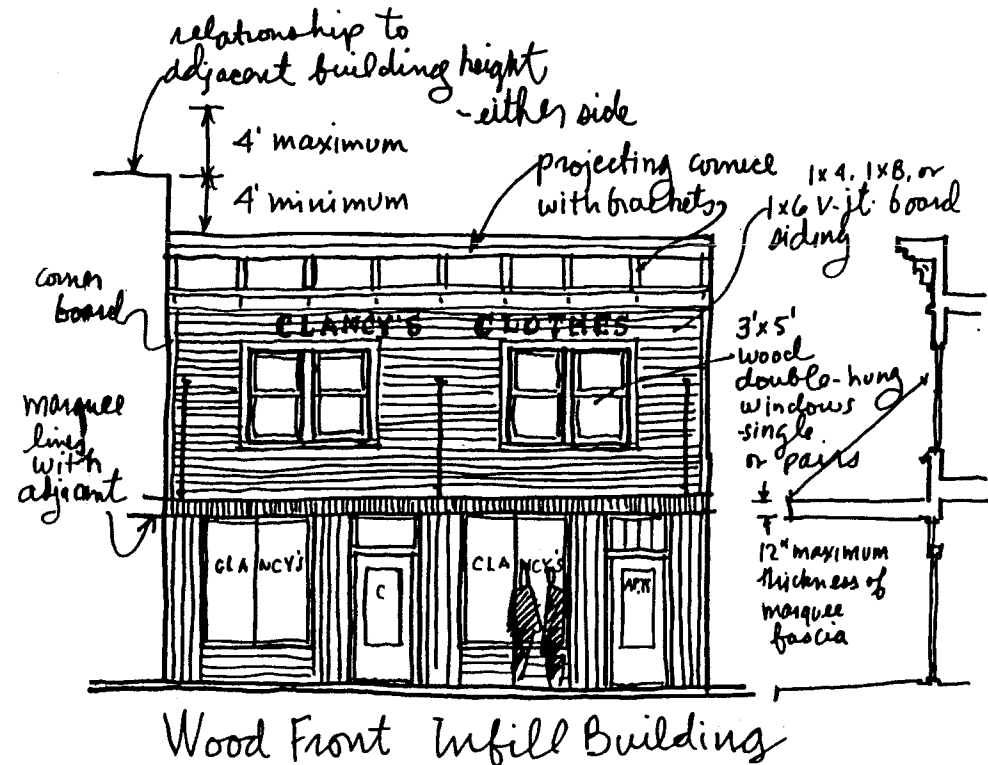 relationship to
adjacent building height
-either side
4' maximum
4' minimum
projecting cornice
with brackets
1x4, 1x8, or
1x6 V-jt. board
siding
corner
board
CLANCY'S CLOTHES
3'x5'
wood
double-hung
windows
-single
or pairs
marquee
lines
with
adjacent
CLANCY'S
C
CLANCY'S
12" maximum
thickness of
marquee
fascia
Wood Front Infill Building